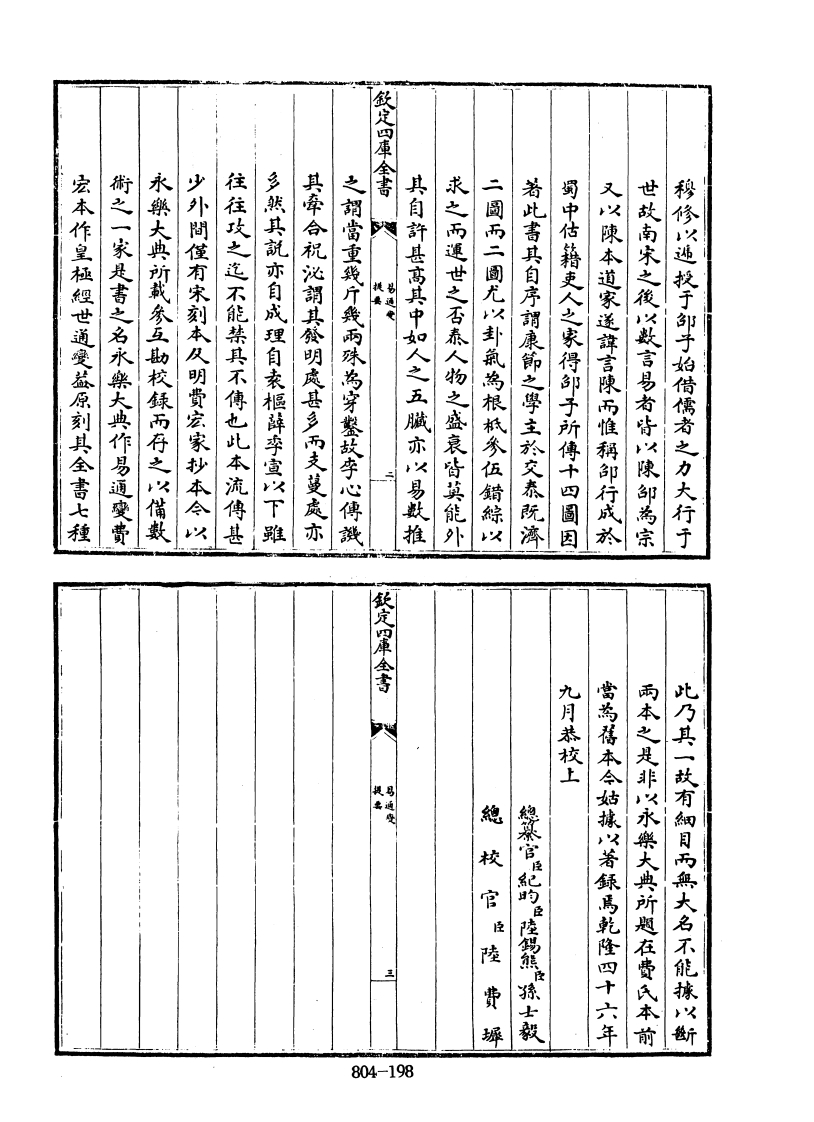 穆修以遞授于邵子始借儒者之力大行于
世故南宋之後以數言易者皆以陳邵為宗
又以陳本道家遂諱言陳而惟稱邵行成於
蜀中估籍吏人之家得邵子所傳十四圖因
著此書其自序謂康節之學主於交泰既濟
二圖而二圖尤以卦氣為根柢參伍錯綜以
求之而運世之否泰人物之盛衰皆莫能外
其自許甚高其中如人之五臟亦以易數推
欽定四庫全書
易通變
提要
二
之謂當重幾斤幾兩殊為穿鑿故李心傳譏
其牽合祝泌謂其發明處甚多而支蔓處亦
多然其説亦自成理自袁樞薛季宣以下雖
往往攻之迄不能禁其不傳也此本流傳甚
少外間僅有宋刻本及明費宏家抄本今以
永樂大典所載參互勘校録而存之以備數
術之一家是書之名永樂大典作易通變費
宏本作皇極經世通變葢原刻其全書七種
此乃其一故有細目而無大名不能據以斷
兩本之是非以永樂大典所題在費氏本前
當為舊本今姑據以著録焉乾隆四十六年
九月恭校上
總纂官臣紀昀臣陸錫熊臣孫士毅
總校官臣陸費墀
欽定四庫全書
易通變
提要
三
804-198